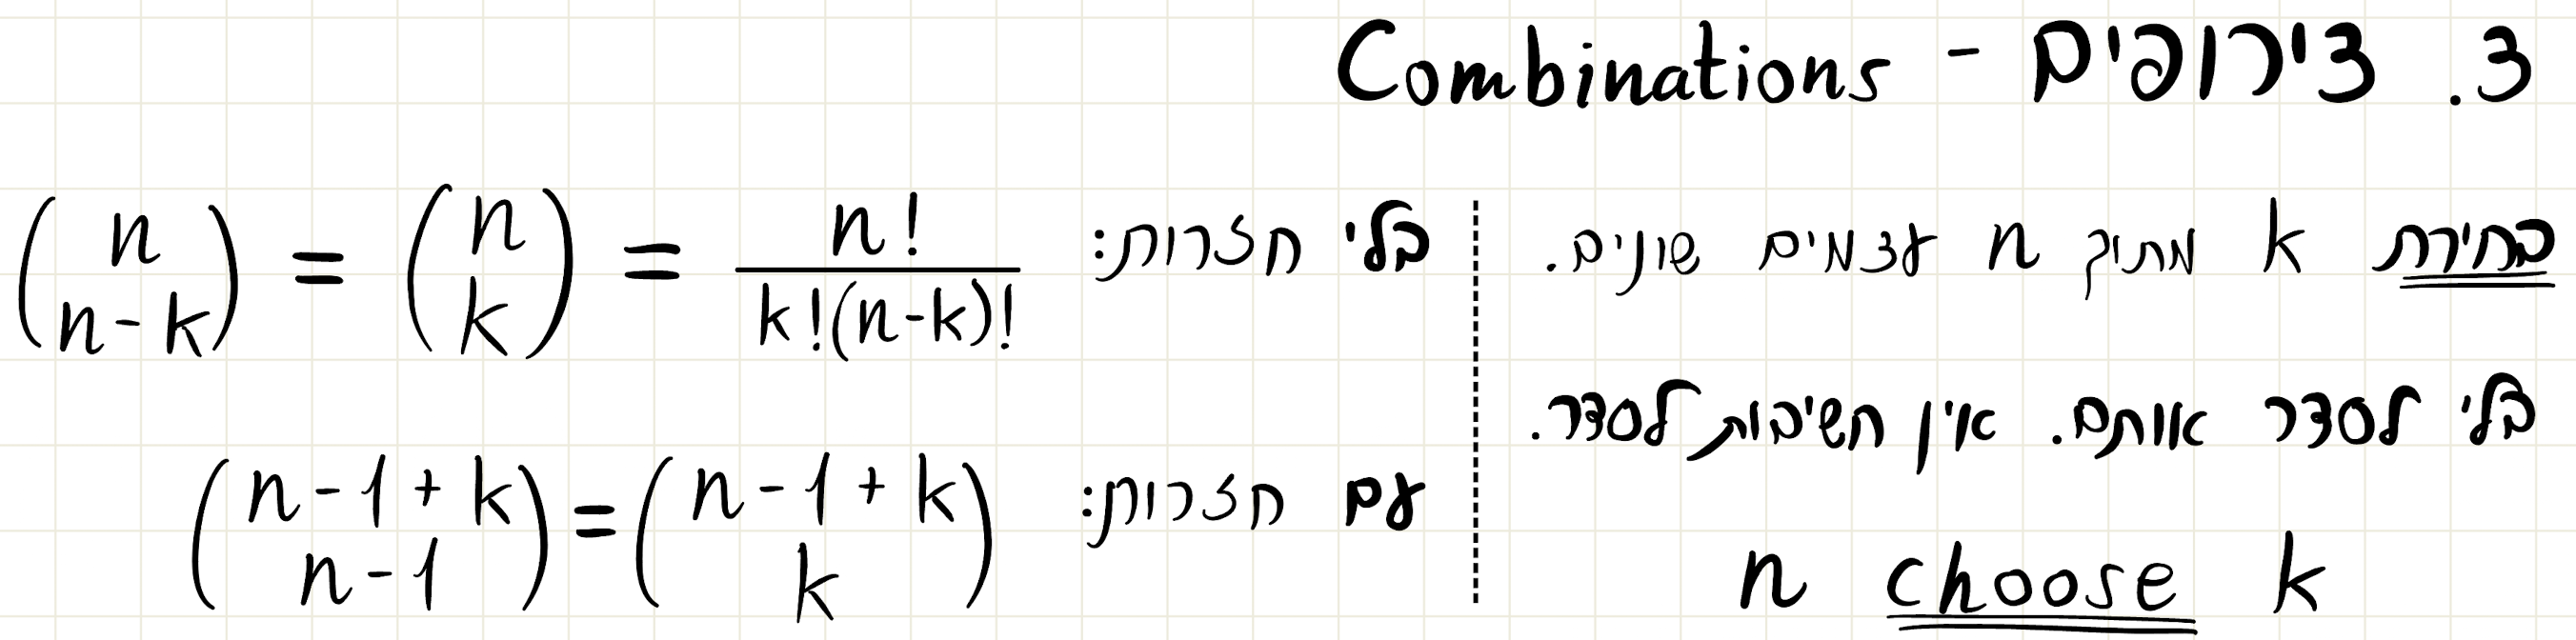 3. צירופים - Combinations
בחירת k מתוך n עצמים שונים.
בלי לסדר אותם. אין חשיבות לסדר.
n choose k
בלי חזרות: n! / k!(n-k)! = (n k) = (n n-k)
עם חזרות: (n-1+k k) = (n-1+k n-1)